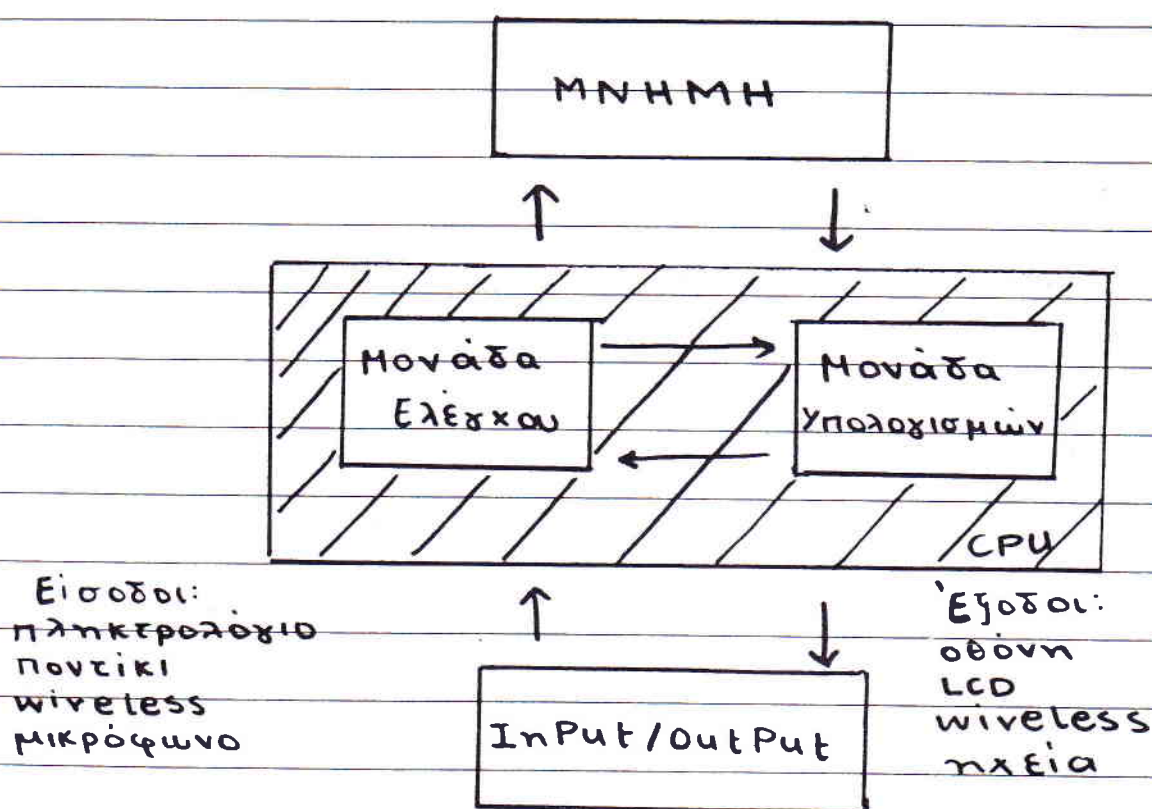 ΜΝΗΜΗ
Μονάδα
Ελέγχου
Μονάδα
Υπολογισμών
CPU
Είσοδοι:
πληκτρολόγιο
ποντίκι
wireless
μικρόφωνο
InPut/OutPut
Έξοδοι:
οθόνη
LCD
wireless
ηχεία